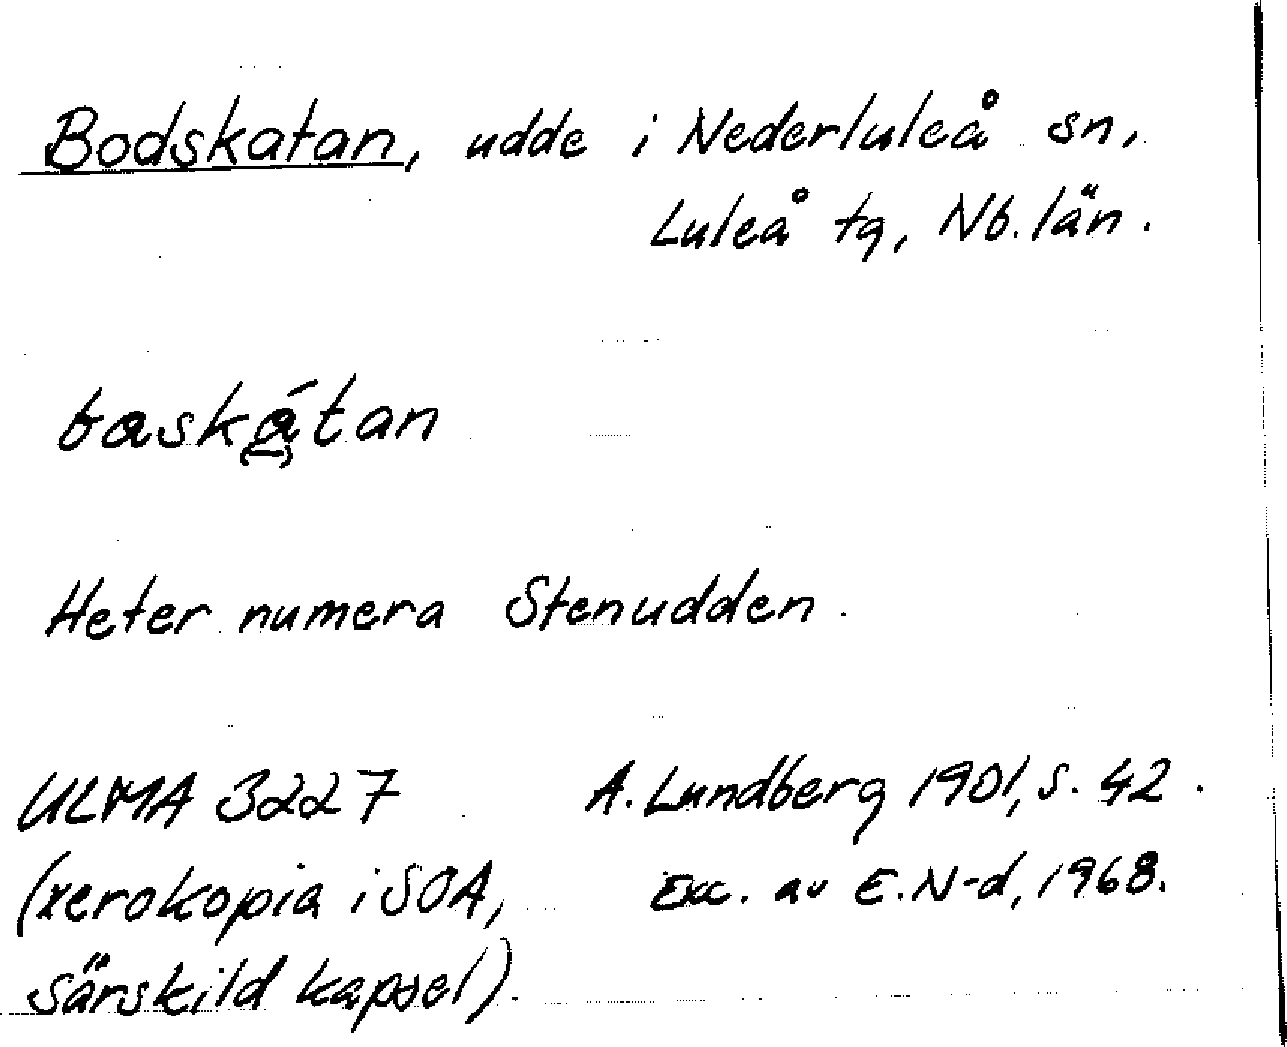 Bodskatan, udde i Nederluleå sn,
Luleå tg, Nb. län.
baskátan
Heter numera Stenudden.
ULMA 3227 A. Lundberg 1901, s. 42.
(xerokopia i SOA, Exc. av E. N-d, 1968.
särskild kapsel).